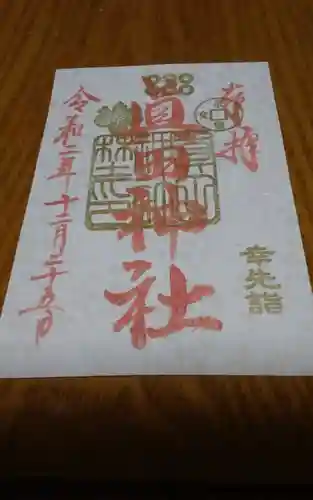 奉拝
幸先詣
眞田神社
令和二年十二月二十五日